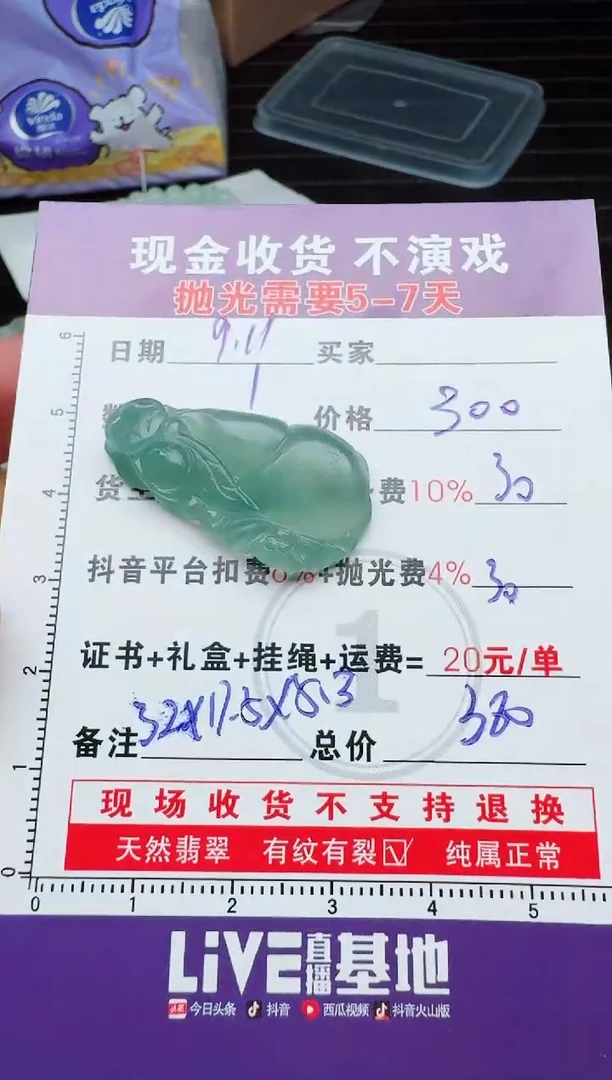 Vinda
现金收货 不演戏
抛光需要5-7天
日期 9.11 买家
价格 300
费10% 30
抖音平台扣费6%+抛光费4% 30
证书+礼盒+挂绳+运费= 20元/单
备注 32X17.5X5.3 总价 380
现场收货不支持退换
天然翡翠 有纹有裂☑ 纯属正常
6
5
4
3
2
1
0
0 1 2 3 4 5
1
LiVE直播基地
头条 今日头条 抖音 西瓜视频 抖音火山版